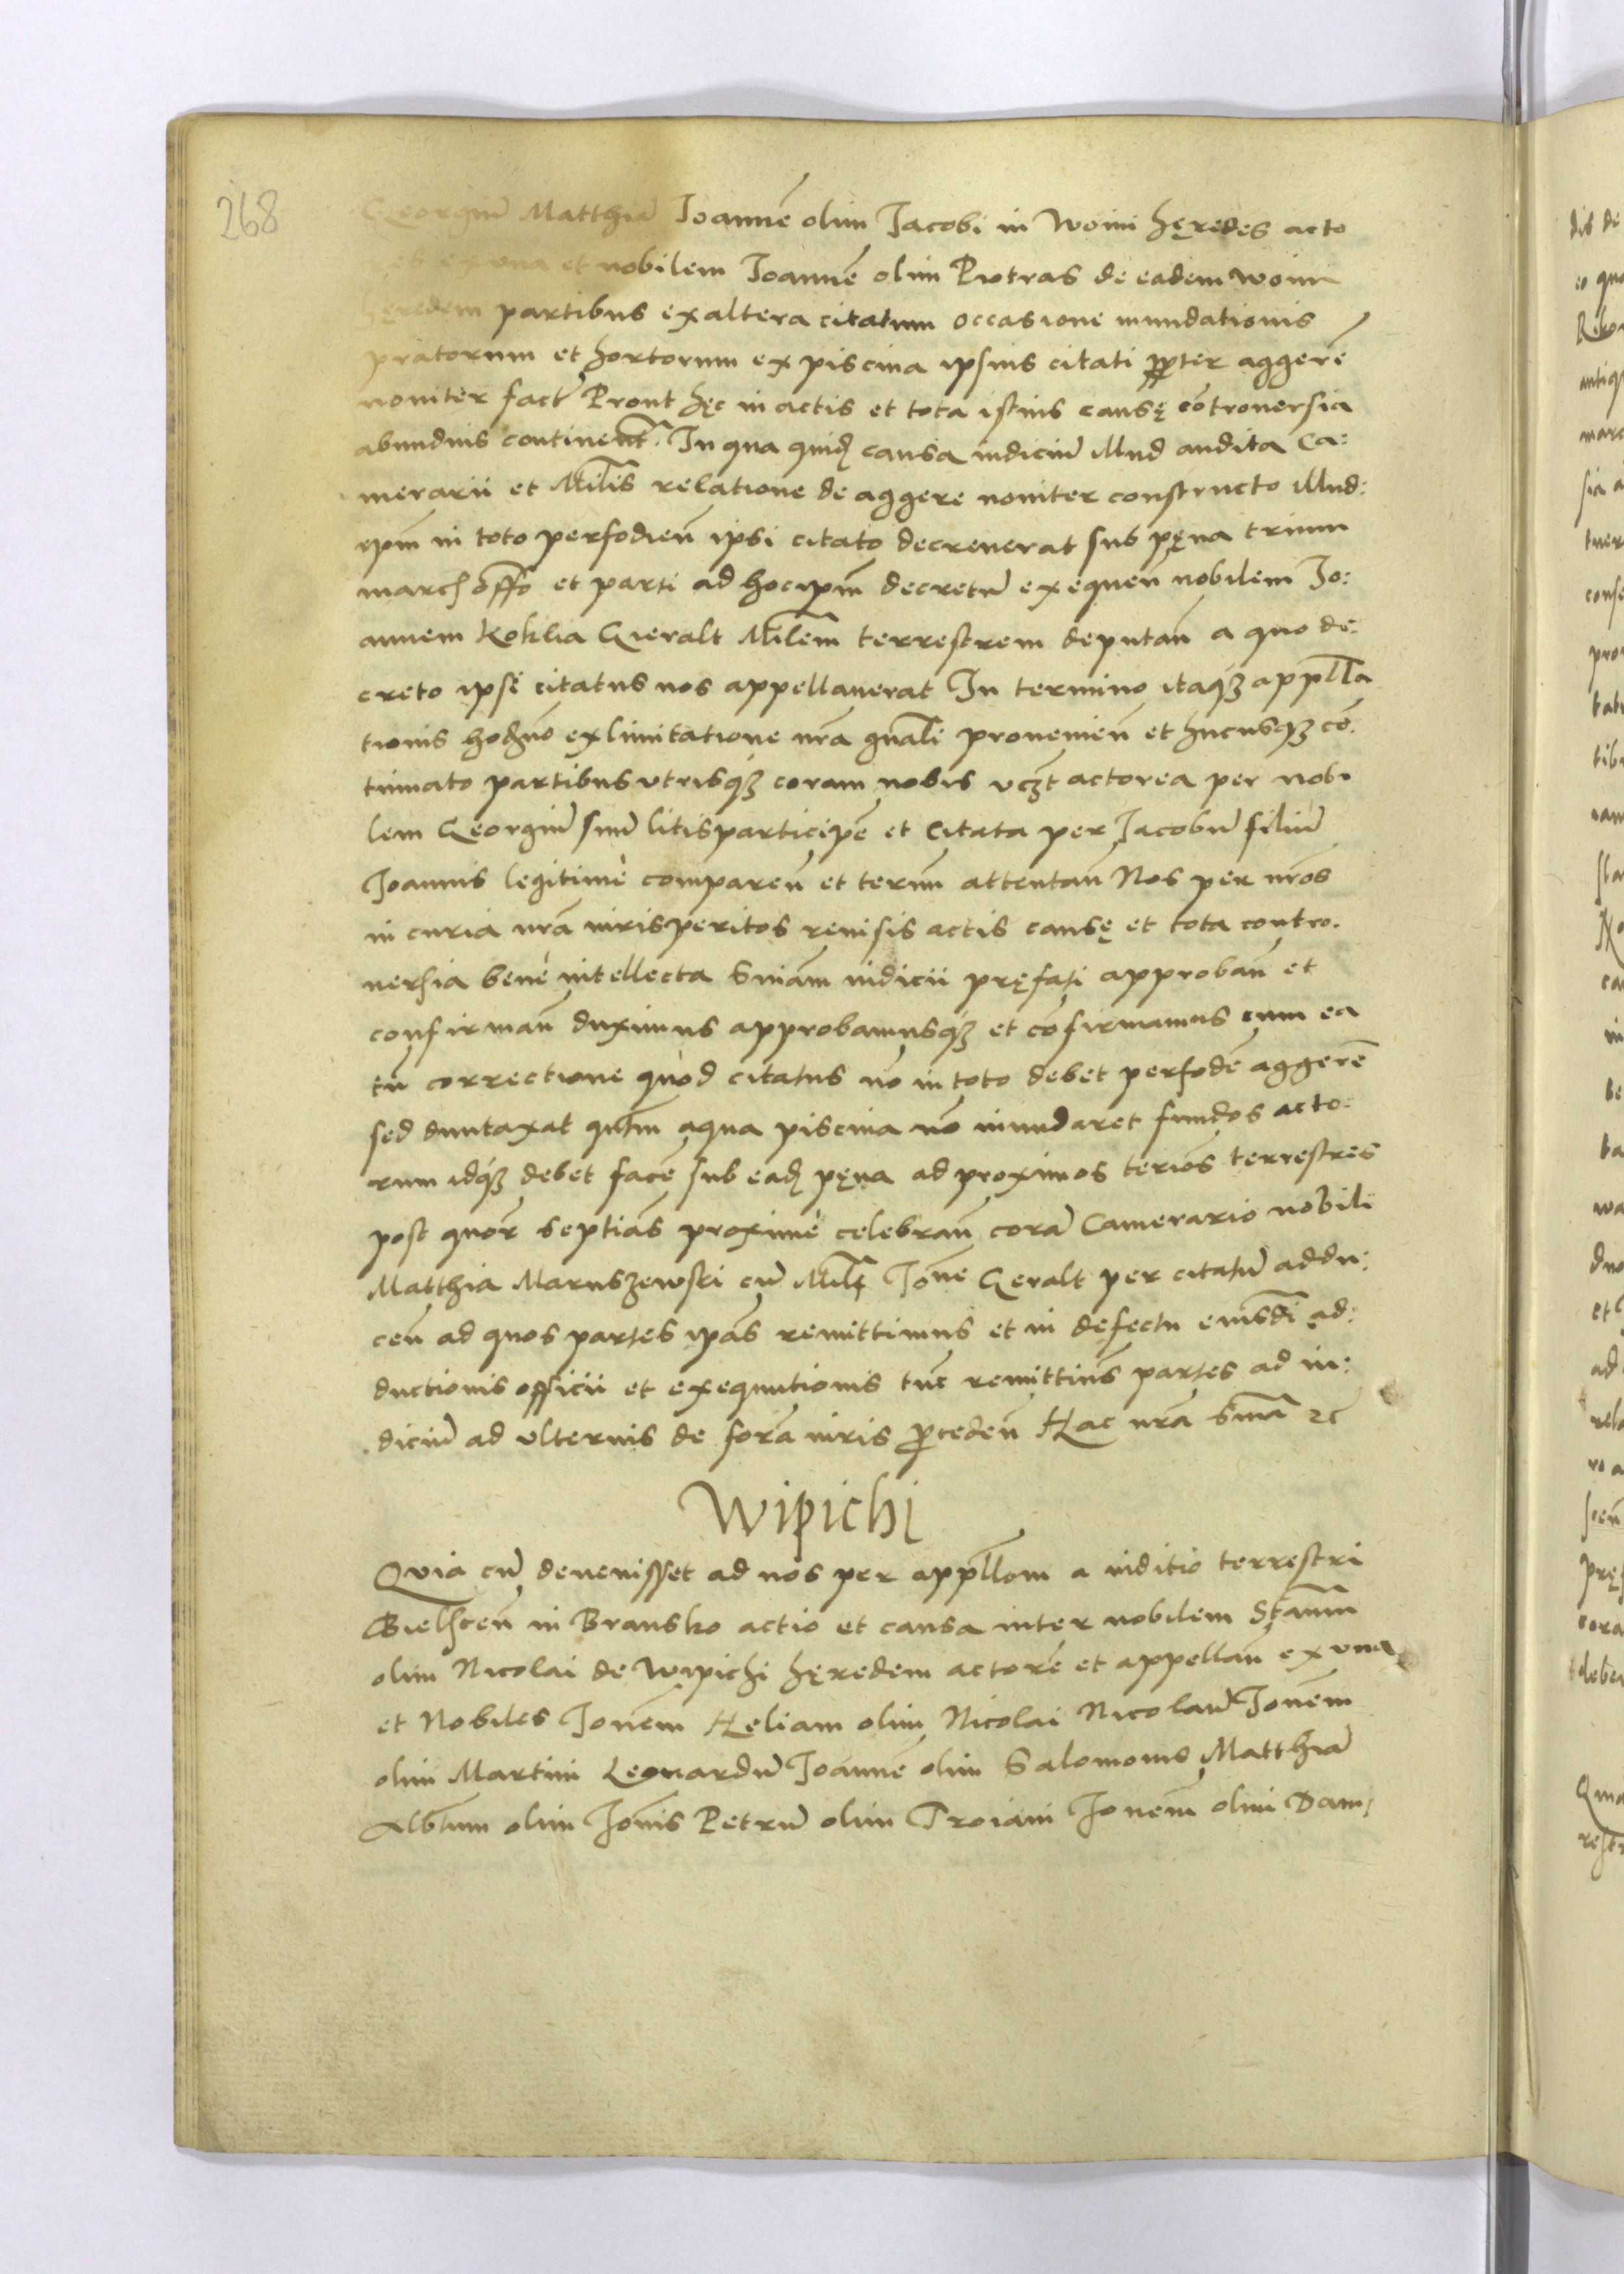 268
Georgiū Matthiā Joannē olim Jacobi in Woini hęredes acto
et ex una et nobilem Joannē olim Piotras de eadem Woini
hęredem partibus ex altera citatum occasione inundationis
pratorum et hortorum ex piscina ipsius citati ꝓpter aggerē
noviter fact̄ Prout hęc in actis et tota istius causę cōtroversia
abundius continent̄. In qua quid̨ causa iudiciū illud audita Ca:
merarii et Mil̄is relatione de aggere noviter constructo illud:
ip̄m in toto perfodien̄ ipsi citato decreverat sub pęna trium
march̨ off̄o et parti ad hoc ip̄m decretū exequen̄ nobilem Jo:
annem Koklia Gieralt Mil̄em terrestrem deputan̄ a quo de:
creto ipse citatus nos appellaverat In termino itaqꝫ appl̄la
tionis hod̄no ex limitatione nr̄a gn̄ali provenien̄ et hucusqꝫ cō:
tinuato partibus utrisqꝫ coram nobis vcꝫt actorea per nobi
lem Georgiū suū litis participē et citata per Jacobū filiū
Joannis legitimè comparen̄ et ter̄num attentan̄ Nos per nr̄os
in curia nr̄a iurisperitos revisis actis causę et tota contro.
versia benè intellecta Sn̄iam iudicii pręfati approban̄ et
confirman̄ duximus approbamusqꝫ et cōfirmamus cum ea
tn̄ correctione quòd citatus nō in toto debet perfodē aggerē
sed duntaxat qn̄tm aqua piscina nō inundaret fundos acto:
rum idqꝫ debet facē sub ead̨ pęna ad proximos ter̄ios terrestres
post quor̄ septi̅as proximè celebran̄ corā Camerario nobili
Matthia Maruszewski cū Mil̄t Jōne Geralt per citatū addu:
cen̄ ad quos partes ip̄as remittimus et in defectu eiusd̄i ad:
ductionis officii et exequutionis tūc remittim̄s partes ad iu:
diciū ad ulterius de for̄a iuris ꝓceden̄ Hac nr̄a Sn̄ia ⁊c̄
Wipichi
Quia cū devenisset ad nos per appl̄lom a iuditio terrestri
Bielscen̄ in Bransko actio et causa inter nobilem Stan̄m
olim Nicolai de Wipichi hęredem actorē et appellan̄ ex una
et Nobiles Jon̄em Heliam olim Nicolai Nicolaū Jon̄em
olim Martini Leonardū Joannē olim Salomonis Matthiā
Alb̄tum olim Jōnis Petrū olim Troiani Jonem̄ olim Dam: